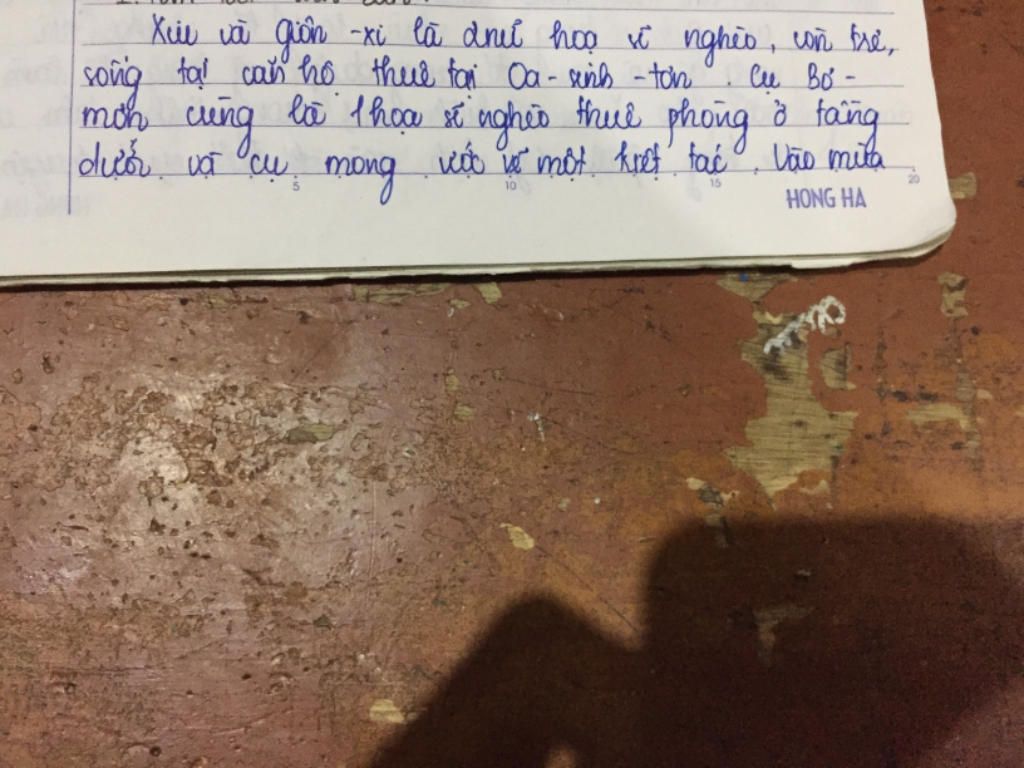 Xiu và Giôn-xi là 2 nữ hoạ sĩ nghèo, còn trẻ,
sống tại căn hộ thuê tại Oa-sinh-tơn. Cụ Bơ-
mơn cũng là 1 hoạ sĩ nghèo thuê phòng ở tầng
dưới và cụ mong ước vẽ một kiệt tác. Vào mùa
5 10 15 20
HONG HA